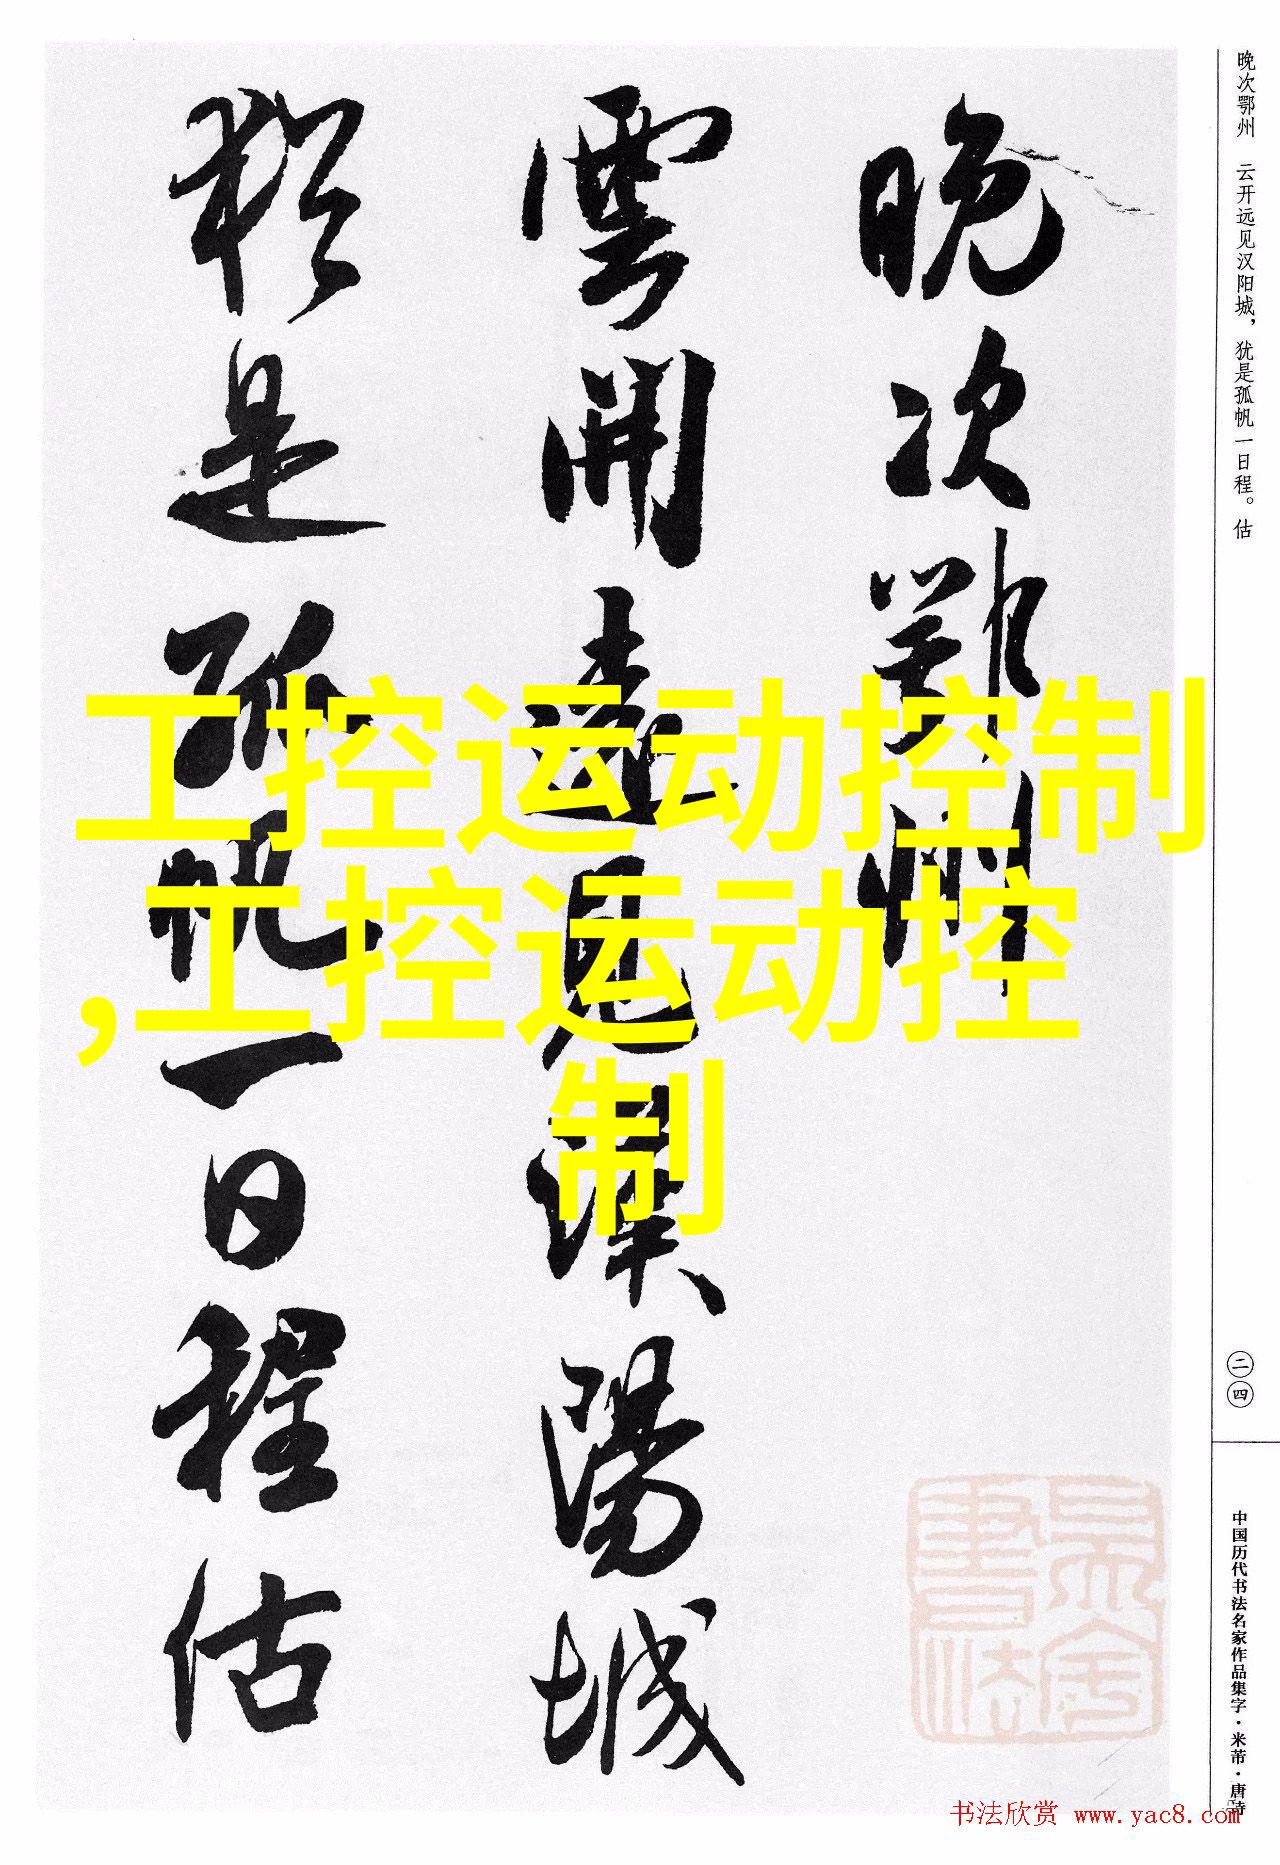 晚次鄂州
雲開遠見漢陽城
猶是孤帆一日程估
工控运动控制
,工控运动控
制
晚次鄂州 云开远见汉阳城，犹是孤帆一日程。估
二四
中国历代书法名家作品集字·米芾·唐诗
书法欣赏 www.yac8.com